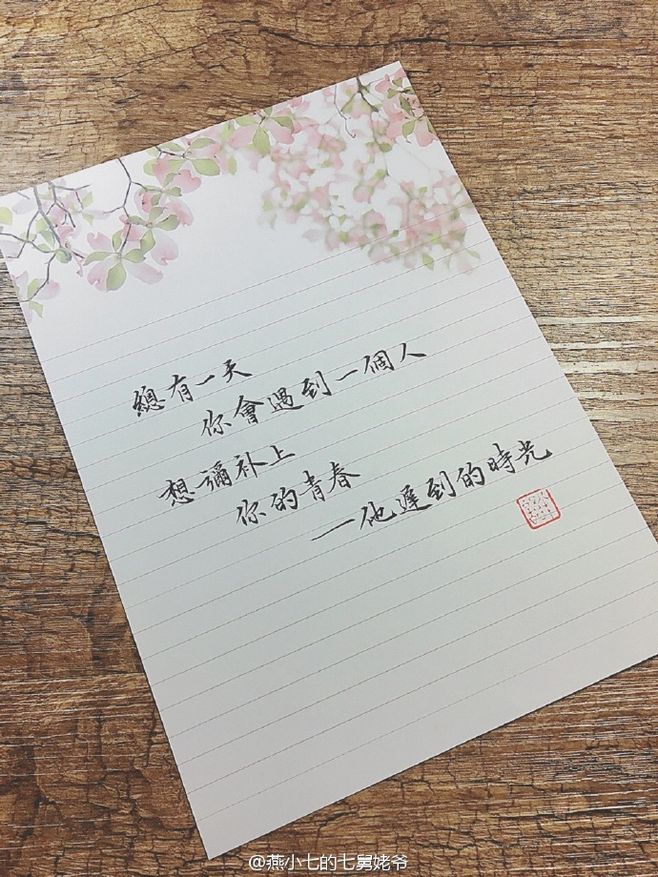 總有一天
你會遇到一個人
想彌補上
你的青春
一他遲到的時光
@燕小七的七舅姥爷